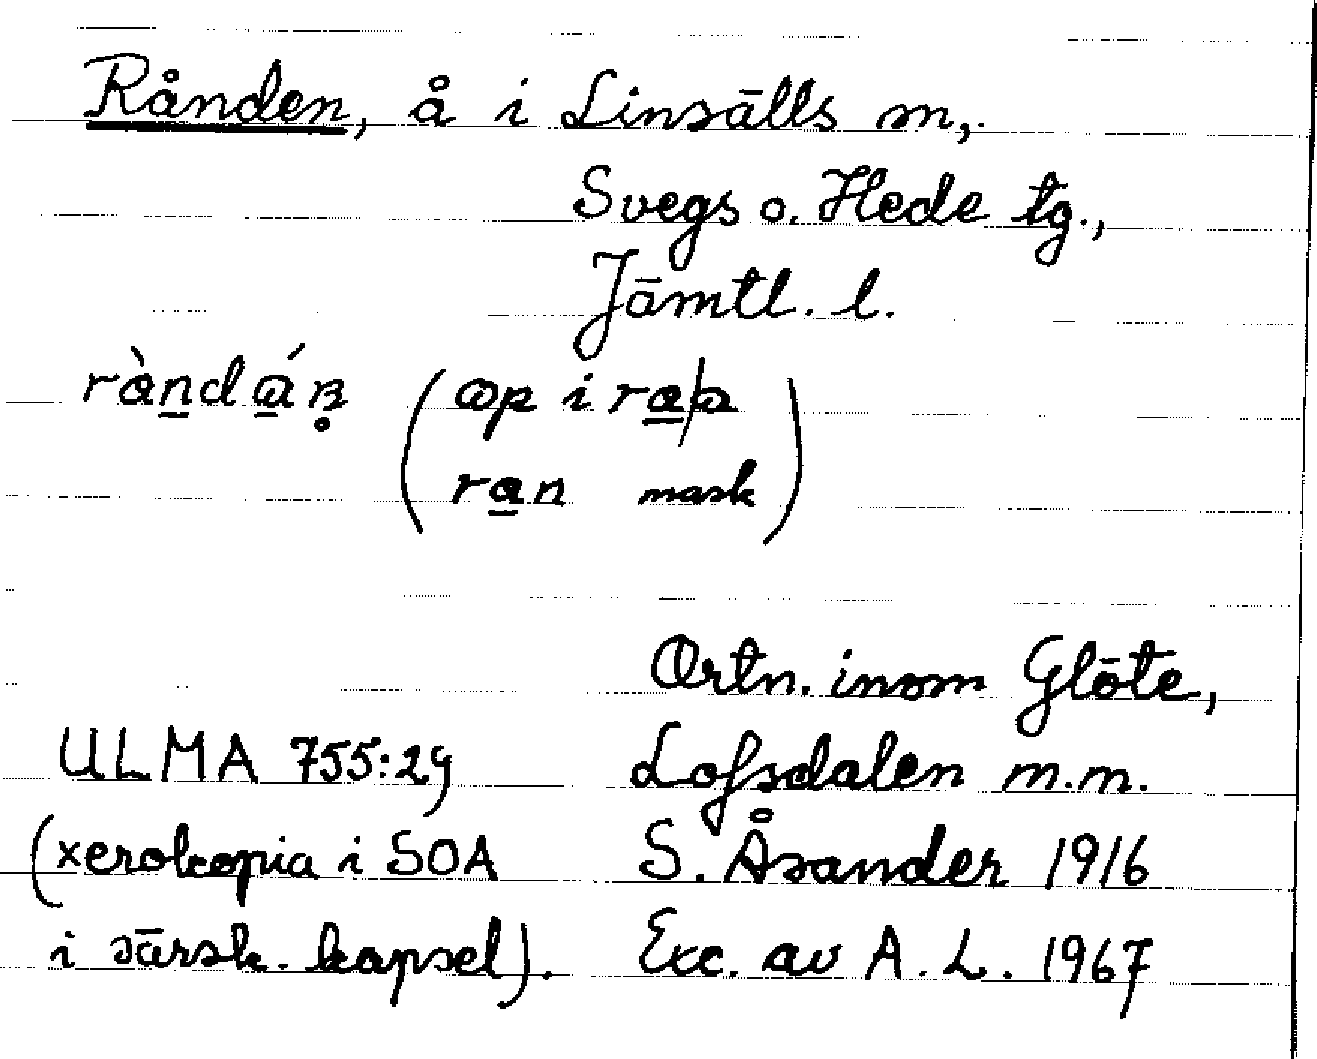 Rånden, å i Linsälls sn,
Svegs o. Hede tg.,
Jämtl. l.
(
ran mask)
Ortn. inom Glöte,
ULMA 755:29 Lofsdalen m.m.
(xerokopia i SOA S. Åsander 1916
i särsk. kapsel). Exc. av A.L. 1967